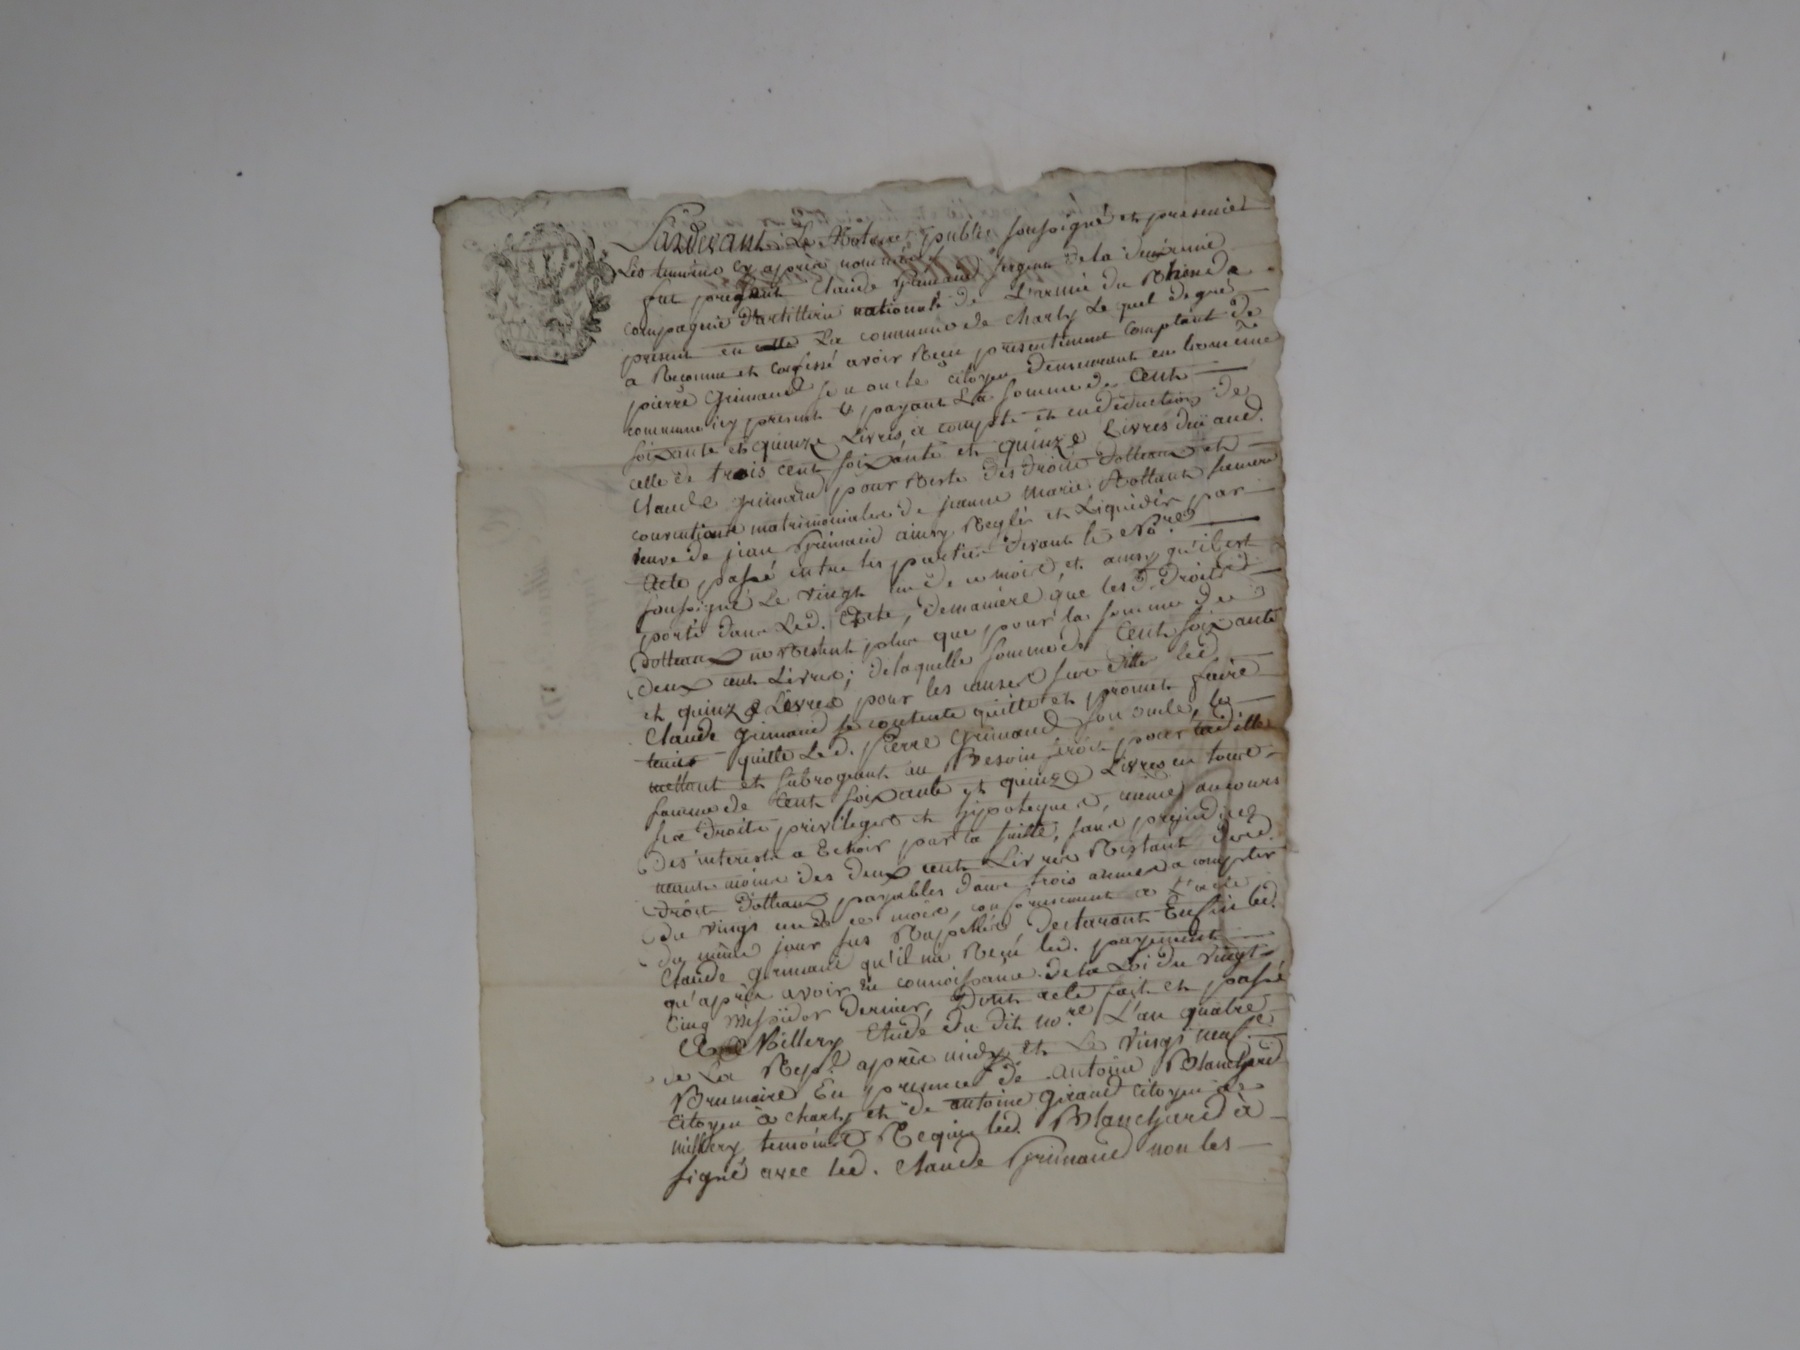 Pardevant Le Notaire public soussigné et presents
Les temoins cy après nommés
fut present Claude Grimaud sergent de la deuxieme
compagnie d'artillerie nationale de L'armée du Rhin de
present en La commune de Charly Le quel de gré
a Reconnu et confessé avoir Reçu presentement comptant de
pierre Grimaud son oncle citoyen demeurant en la meme
commune icy present & payant La somme de Cent
soixante et quinze Livres, a compte et en deduction de
celle de trois cent soixante et quinze Livres due aud.
Claude grimaud pour Reste des droits dotteaux et
conventions matrimoniales de jeanne Marie Rollant femme
veuve de jean Grimaud ainsy Reglés et Liquidés par
Acte passé entre les parties devant le No.re
soussigné Le vingt un de ce mois, et ainsy qu'il est
porté dans Led. Acte, demaniere que les d. droits
dotteaux ne Restent plus que pour la somme de
deux cent Livres; de laquelle somme de Cent soixante
et quinze Livres pour les causes sus dittes led.
Claude grimaud se contente quitte et promet faire
tenir quitte Led. Pierre Grimaud son oncle, le
mettant et subrogeant au Besoin seroit pour laditte
somme de Cent soixante et quinze Livres en tous
ses droits privileges et hypoteques, même au cours
des interests a Echoir par la suitte, sans prejudice
neant moins des deux cent Livres Restant desd.
droits dotteaux payables dans trois années a compter
du vingt un de ce mois, conformement a L'acte
du même jour sus Rappellé, declarant Enfin led.
Claude grimaud qu'il n'a Reçu led. payement
qu'après avoir Eu connoissance de la Loi du vingt
Cinq Messidor dernier, Dont acte fait et passé
A Millery Etude du dit no.re L'an quatre
de La Rep.e après midy et Le vingt neuf
Brumaire En presence de Antoine Blanchard
Citoyen à Charly et de antoine Giraud Citoyen a
millery temoins Requis led. Blanchard à
signé avec led. Claude Grimaud non les